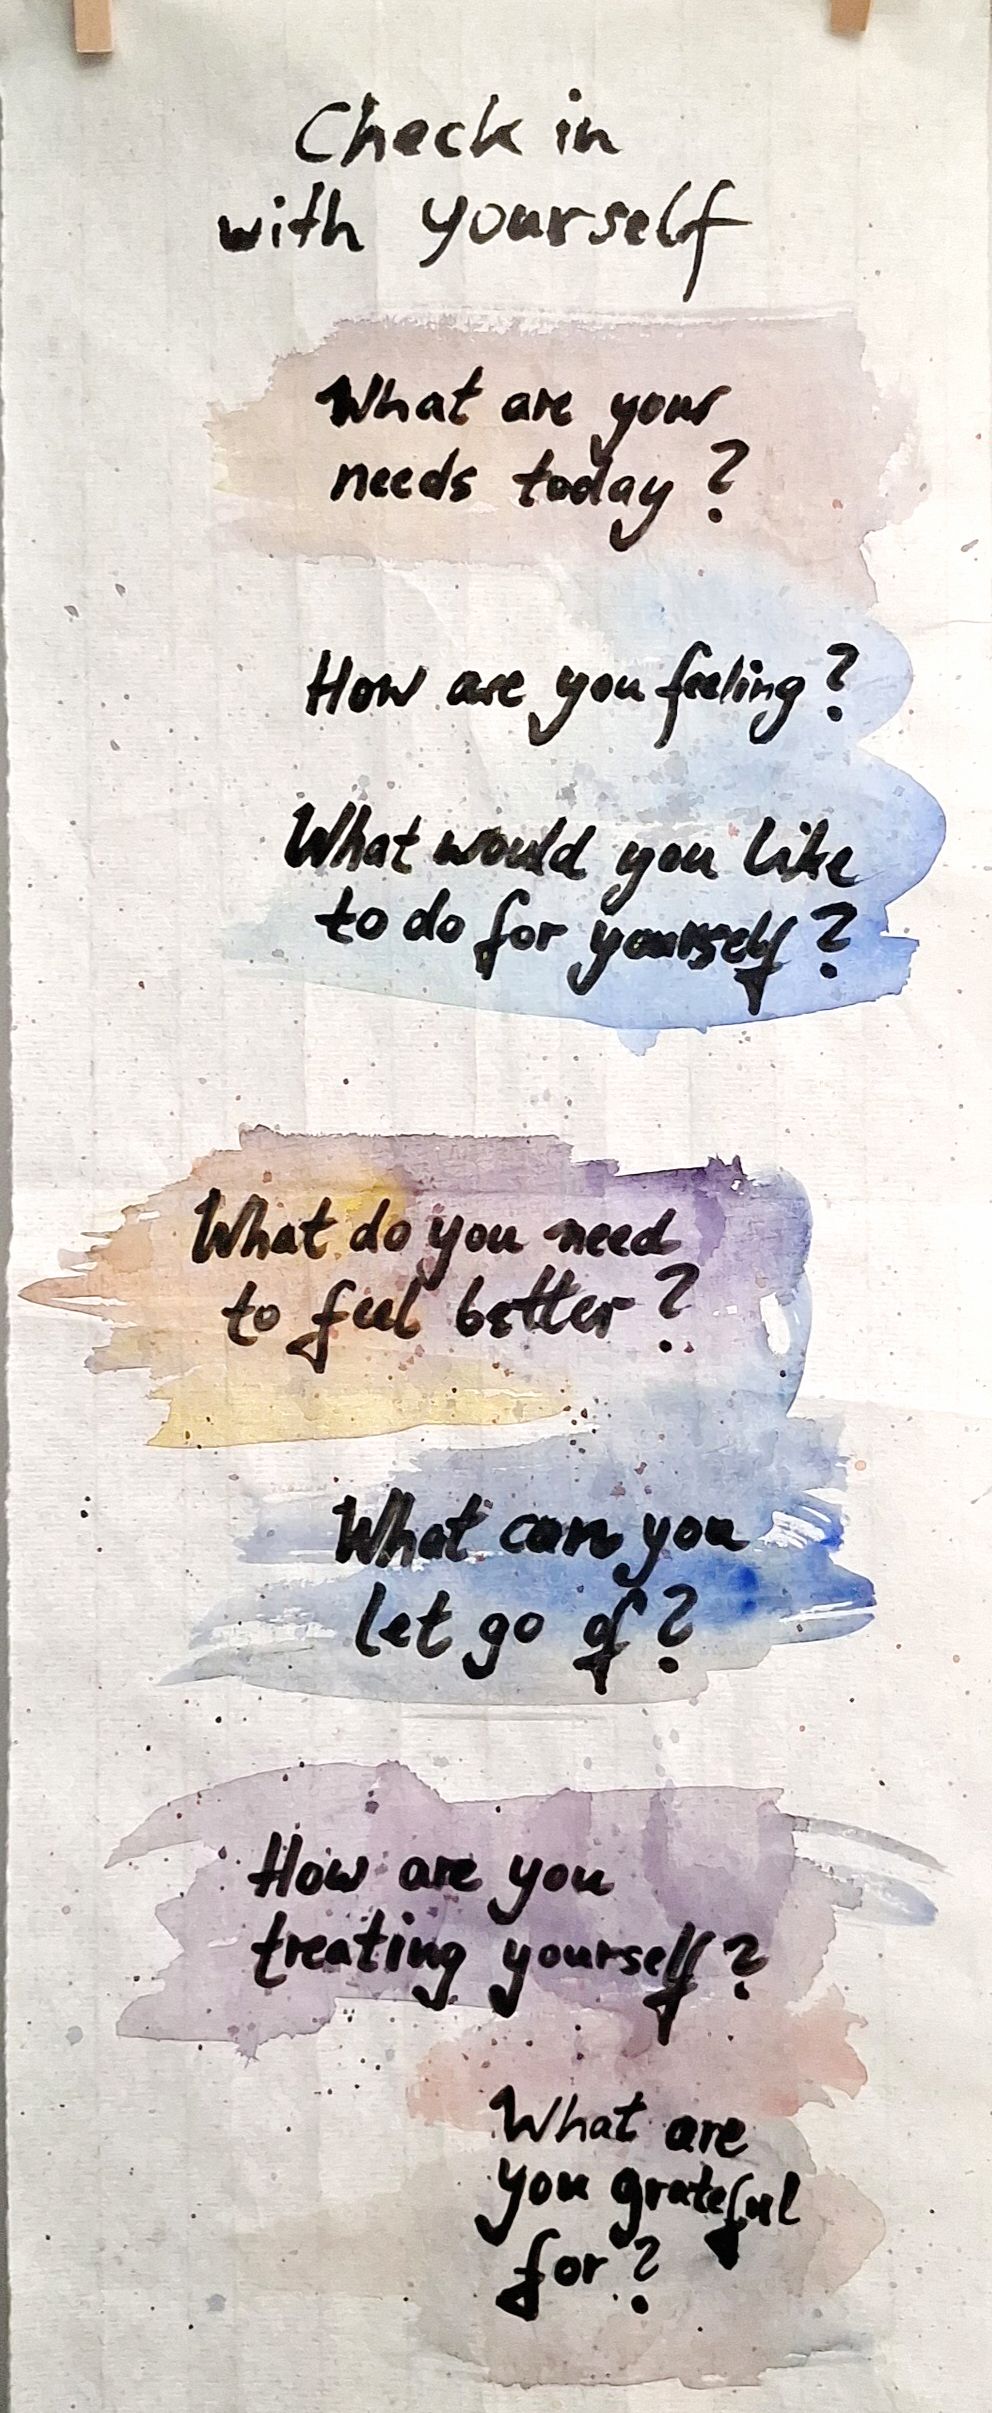 Check in
with yourself
What are your
needs today?
How are you feeling?
What would you like
to do for yourself?
What do you need
to feel better?
What can you
let go of?
How are you
treating yourself?
What are
you grateful
for?